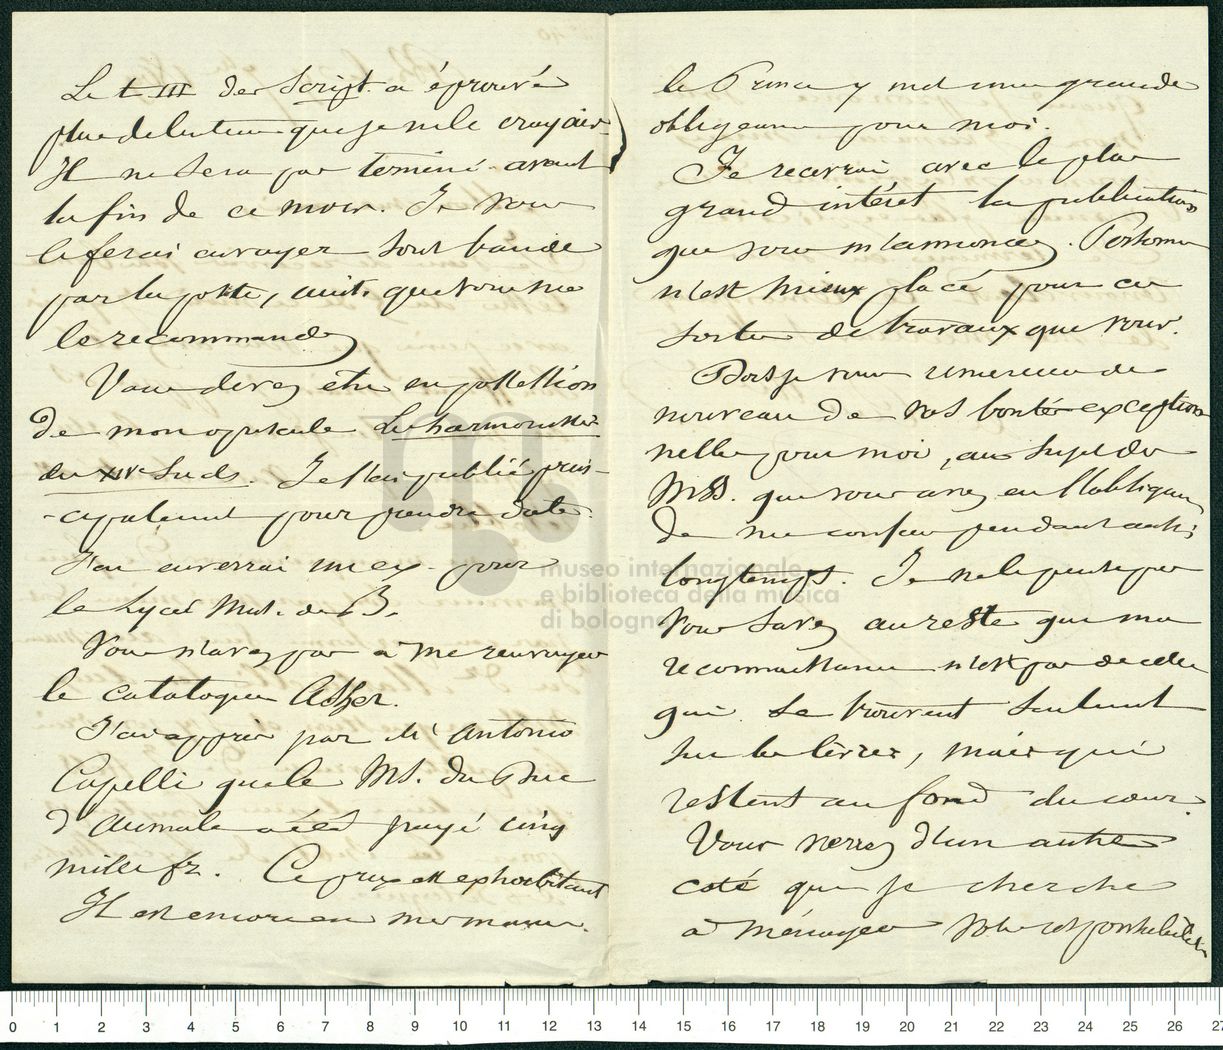 Le t III des Script. a éprouvé
plus de lenteur que je ne le croyais.
Il ne sera pas terminé avant
la fin de ce mois. Je vous
le ferai envoyer sous bande
par la poste, ainsi que vous me
le recommandez
Vous devez être en possession
de mon opuscule Les harmonistes
du XIVe siècle. Je l'ai publié prin-
-cipalement pour prendre date.
J'en enverrai un ex. pour
le Lycée Mus. de B.
Vous n'avez pas à me renvoyer
le catalogue Asher.
J'ai appris par Mr Antonio
Capelli que le MS. du Duc
d'Aumale a été payé cinq
mille fr. Ce prix est exhorbitant
Il est encore en mes mains.
le Prince y met une grande
obligeance pour moi.
Je recevrai avec le plus
grand intérêt la publication
que vous m'annoncez. Personne
n'est mieux placé pour ces
sortes de travaux que vous.
Dois-je vous remercier de
nouveau de vos bontés exception
nelles pour moi, au sujet des
MSS. que vous avez eu l'obligeance
de me confier pendant aussi
longtemps. Je ne le pense pas
Vous savez au reste que ma
reconnaissance n'est pas de celles
qui se trouvent seulement
sur les lèvres, mais qui
restent au fond du cœur.
Vous verrez d'un autre
coté que je cherche
à ménager votre responsabilité
museo internazionale
e biblioteca della musica
di bologna
0 1 2 3 4 5 6 7 8 9 10 11 12 13 14 15 16 17 18 19 20 21 22 23 24 25 26 27